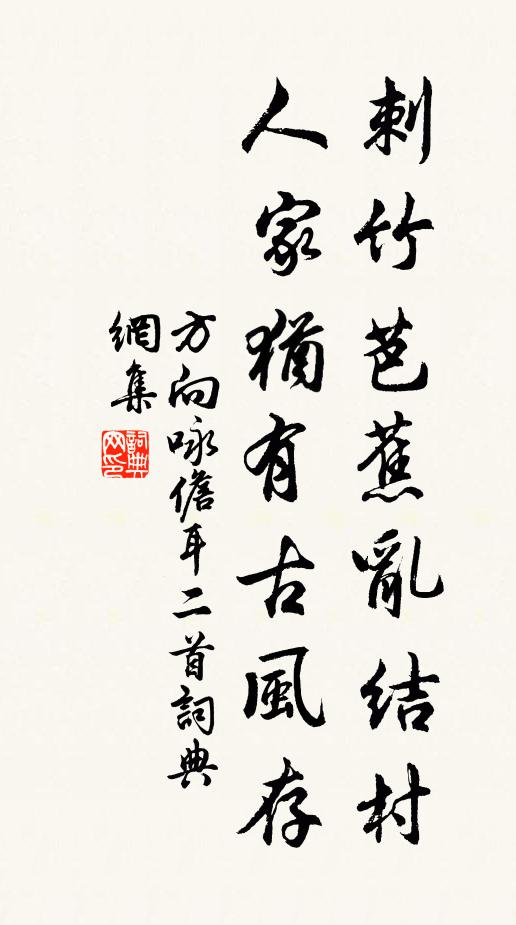 刺竹芭蕉亂結村
人家猶有古風存
方向咏儋耳二首詞典
網集
詞典网印